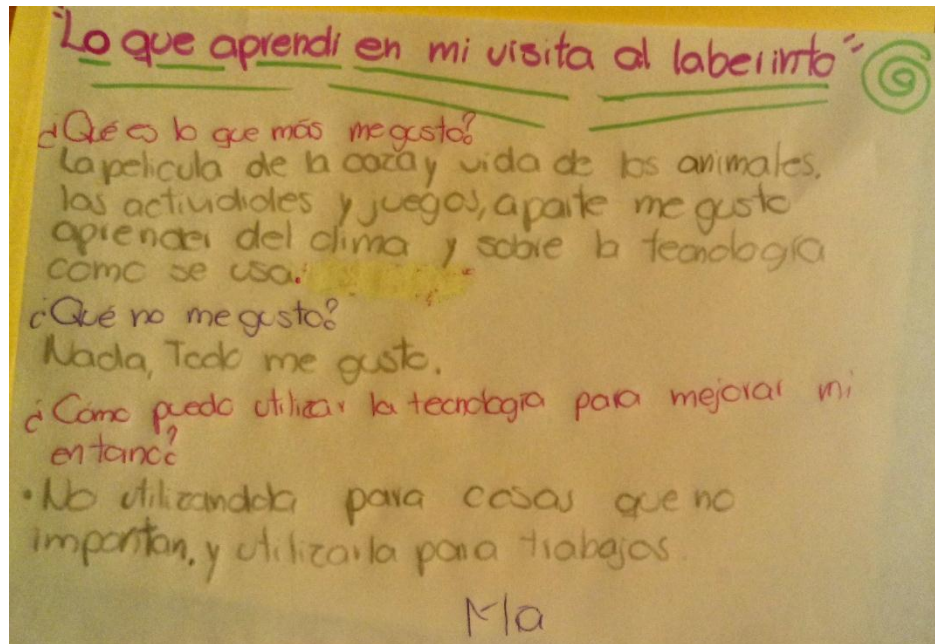 "Lo que aprendi en mi visita al laberinto"
¿Qué es lo que más me gusto?
La pelicula de la caza y vida de los animales.
las actividades y juegos, aparte me gusto
aprender del clima y sobre la tecnología
como se usa.
¿Qué no me gusto?
Nada, Todo me gusto.
¿Como puedo utilizar la tecnología para mejorar mi
entorno?
• No utilizandola para cosas que no
importan, y utilizarla para trabajos.